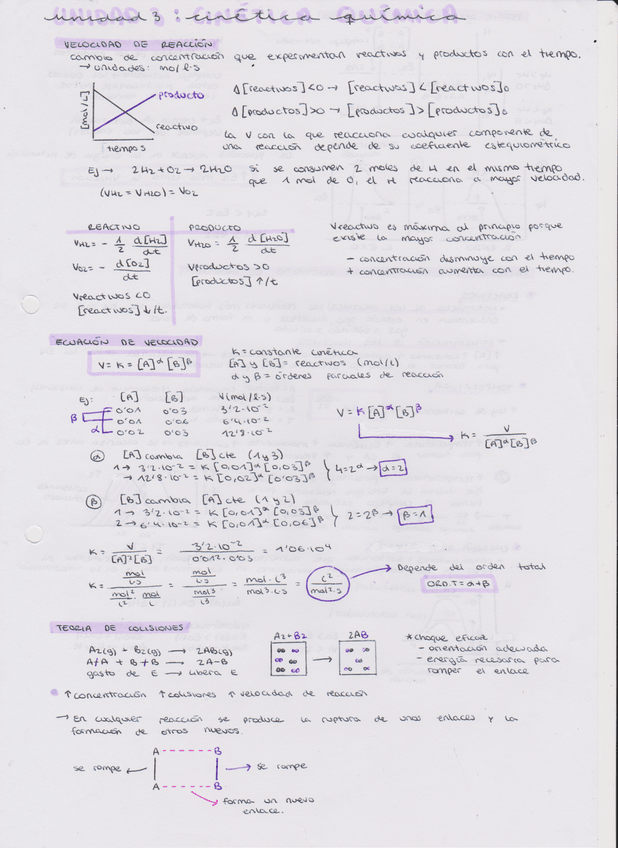 unidad 3: cinética química
VELOCIDAD DE REACCIÓN:
cambio de concentración que experimentan reactivos y productos con el tiempo.
→ unidades: mol/l·s
[mol/L]
producto
reactivo
tiempo s
Δ[reactivos]<0 → [reactivos] < [reactivos]₀
Δ[productos]>0 → [productos] > [productos]₀
la V con la que reacciona cualquier componente de
una reacción depende de su coeficiente estequiométrico
Ej → 2H₂ + O₂ → 2H₂O
si se consumen 2 moles de H en el mismo tiempo
que 1 mol de O, el H reacciona a mayor velocidad.
(VH₂ = VH₂O) = VO₂
REACTIVO
VH₂ = - 1/2 d[H₂]/dt
VO₂ = - d[O₂]/dt
Vreactivos < 0
[reactivos] ↓/t.
PRODUCTO
VH₂O = 1/2 d[H₂O]/dt
Vproductos > 0
[productos] ↑/t
Vreactivo es máxima al principio porque
existe la mayor concentración
- concentración disminuye con el tiempo
+ concentración aumenta con el tiempo.
ECUACIÓN DE VELOCIDAD
V = K [A]^α [B]^β
K = constante cinética
[A] y [B] = reactivos (mol/L)
α y β = órdenes parciales de reacción
Ej: [A] [B] V(mol/l·s)
β 0'01 0'03 3'2·10⁻²
0'01 0'06 6'4·10⁻²
α 0'02 0'03 12'8·10⁻²
V = K [A]^α [B]^β
K = V/[A]^α [B]^β
α [A] cambia [B] cte (1 y 3)
1 → 3'2·10⁻² = K [0,01]^α [0,03]^β
→ 12'8·10⁻² = K [0,02]^α [0'03]^β
4 = 2^α → α = 2
β [B] cambia [A] cte (1 y 2)
1 → 3'2·10⁻² = K [0,01]^α [0,03]^β
2 → 6'4·10⁻² = K [0,01]^α [0,06]^β
2 = 2^β → β = 1
K = V/[A]²[B] = 3'2·10⁻²/0'01²·0'03 = 1'06·10⁴
K = mol/L·s / mol²/L² · mol/L = mol/L·s / mol³/L³ = mol·L³/mol³·L·s = L²/mol²·s
Depende del orden total
ORD.T = α+β
TEORIA DE COLISIONES
A₂(g) + B₂(g) → 2AB(g)
A/A + B/B → 2A-B
gasto de E → libera E
A₂+B₂
2AB
*choque eficaz
- orientación adecuada
- energía necesaria para
romper el enlace
↑ concentración ↑ colisiones ↑ velocidad de reacción
→ En cualquier reacción se produce la ruptura de unos enlaces y la
formación de otros nuevos.
A B
se rompe
se rompe
A B
forma un nuevo
enlace.